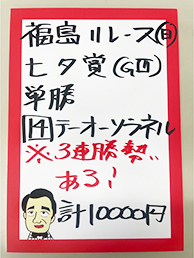 福島11レース(日)
七夕賞(GⅢ)
単勝
14テーオーソラネル
※3連勝勢い
ある!
計10000円